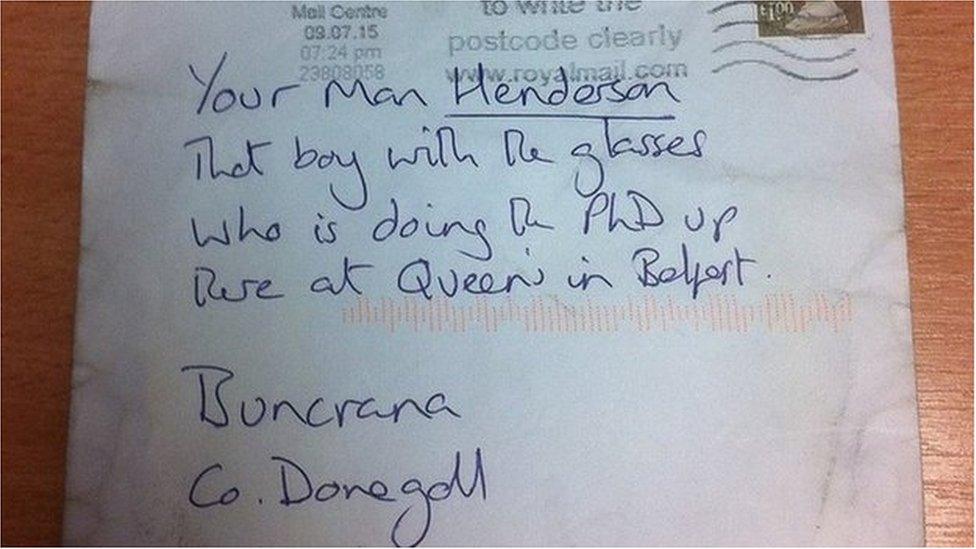 Mail Centre
09.07.15
07:24 pm
23808058
to write the
postcode clearly
www.royalmail.com
£1.00
Your Man Henderson
That boy with the glasses
who is doing the PhD up
here at Queen's in Belfast.
Buncrana
Co. Donegall